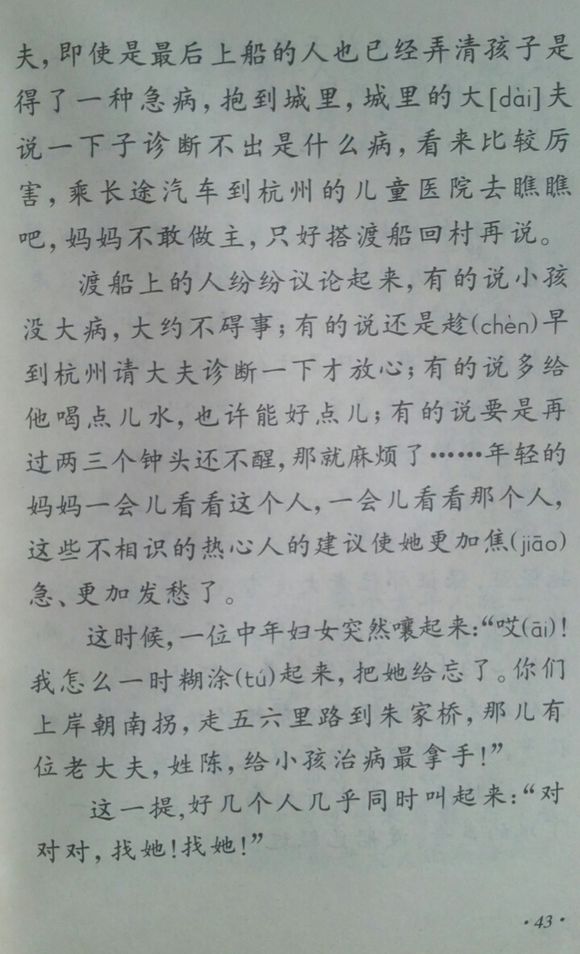 夫，即使是最后上船的人也已经弄清孩子是
得了一种急病，抱到城里，城里的大[dài]夫
说一下子诊断不出是什么病，看来比较厉
害，乘长途汽车到杭州的儿童医院去瞧瞧
吧，妈妈不敢做主，只好搭渡船回村再说。
渡船上的人纷纷议论起来，有的说小孩
没大病，大约不碍事；有的说还是趁(chèn)早
到杭州请大夫诊断一下才放心；有的说多给
他喝点儿水，也许能好点儿；有的说要是再
过两三个钟头还不醒，那就麻烦了……年轻的
妈妈一会儿看看这个人，一会儿看看那个人，
这些不相识的热心人的建议使她更加焦(jiāo)
急、更加发愁了。
这时候，一位中年妇女突然嚷起来：“哎(āi)！
我怎么一时糊涂(tú)起来，把她给忘了。你们
上岸朝南拐，走五六里路到朱家桥，那儿有
位老大夫，姓陈，给小孩治病最拿手！”
这一提，好几个人几乎同时叫起来：“对
对对，找她！找她！”
·43·